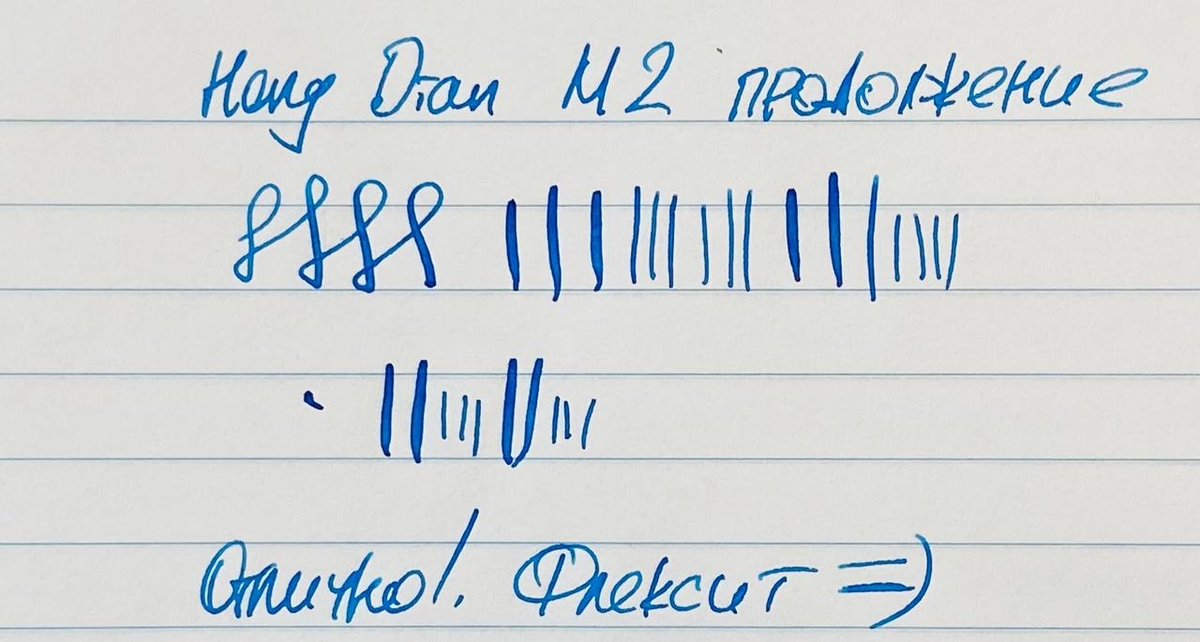 Hong Dian M2 продолжение
Отлично! Флексит =)